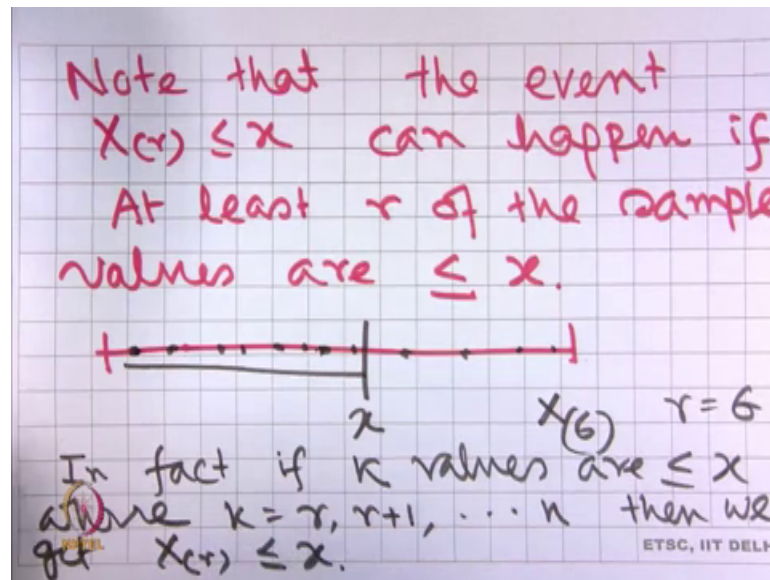 Note that the event
X(r) ≤ x can happen if
At least r of the sample
values are ≤ x.
x X(6) r = 6
In fact if k values are ≤ x
where k = r, r+1, .... n then we
get X(r) ≤ x.
NPTEL
ETSC, IIT DELH